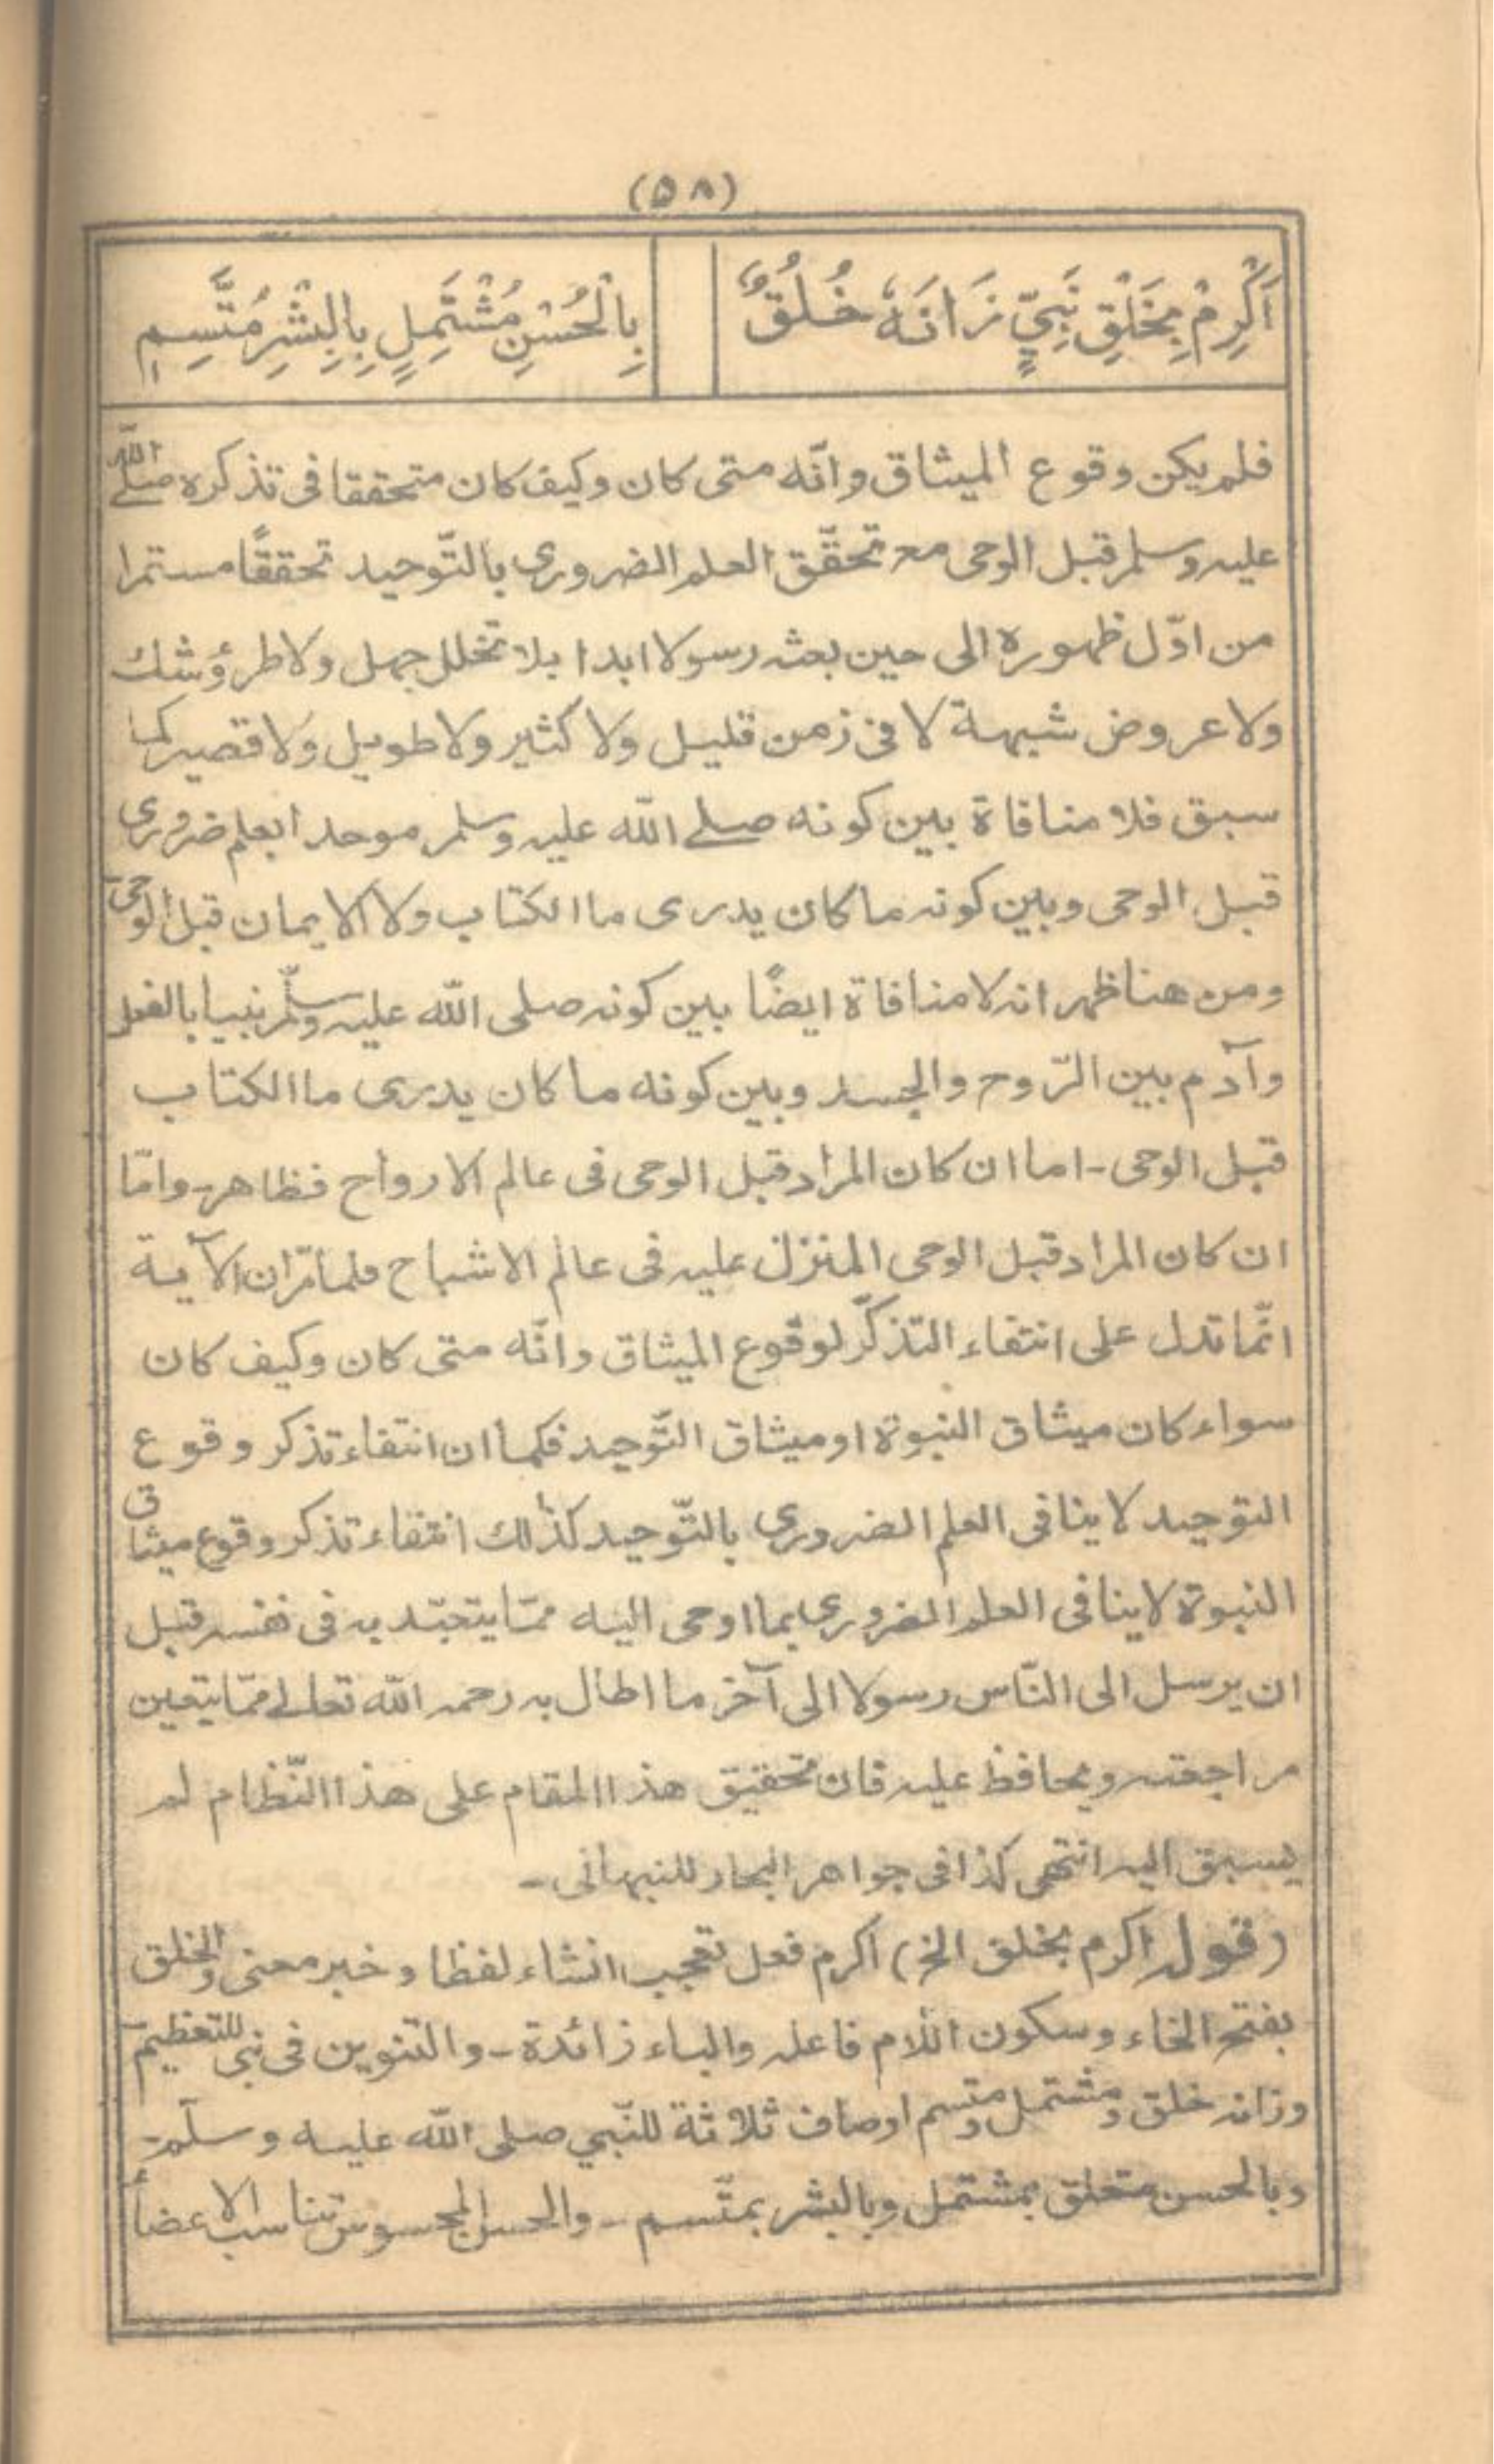 (٥٨)
اَكْرِمْ بِخَلْقِ نَبِيٍّ زَانَهٗ خُلُقٌ
بِالْحُسْنِ مُشْتَمِلٍ بِالْبِشْرِ مُتَّسِمِ
فلم يكن وقوع الميثاق وانّه متى كان وكيف كان متحققا فى تذكره صلے اللّٰه
عليه وسلم قبل الوحى مع تحقّق العلم الضرورى بالتّوحيد تحققًا مستمرا
من اوّل ظهوره الى حين بعثه رسولا ابدا بلا تخلل جهل ولا طرؤ شك
ولا عروض شبهة لا فى زمن قليل ولا كثير ولا طويل ولا قصير كما
سبق فلا منافاة بين كونه صلے اللّه عليه وسلم موحدا بعلم ضرورى
قبل الوحى وبين كونه ما كان يدرى ما الكتاب ولا الايمان قبل الوحى
ومن هنا ظهر انه لا منافاة ايضًا بين كونه صلى اللّه عليه وسلّم نبيا بالفعل
وآدم بين الرّوح والجسد وبين كونه ما كان يدرى ما الكتاب
قبل الوحى - اما ان كان المراد قبل الوحى فى عالم الارواح فظاهر - وامّا
ان كان المراد قبل الوحى المنزل عليه فى عالم الاشباح فلما مرّ ان الآية
انّما تدل على انتفاء التذكّر لوقوع الميثاق وانّه متى كان وكيف كان
سواء كان ميثاق النبوة او ميثاق التّوحيد فكما ان انتفاء تذكر وقوع
التوحيد لا ينافى العلم الضرورى بالتّوحيد كذٰلك انتفاء تذكر وقوع ميثاق
النبوة لا ينافى العلم الضرورى بما اوحى اليه ممّا يتعبّد به فى نفسه قبل
ان يرسل الى النّاس رسولا الى آخر ما اطال به رحمه اللّه تعالےٰ ممّا يتعين
مراجعته ويحافظ عليه فان تحقيق هذا المقام على هذا النّظام لم
يسبق اليه انتهى كذا فى جواهر البحار للنبهانى -
(قوله اكرم بخلق الخ) اكرم فعل تعجب انشاء لفظا وخبر معنى والخلق
بفتح الخاء وسكون اللام فاعله والباء زائدة - والتنوين فى نبى للتعظيم -
وزانه خلق ومشتمل ومتسم اوصاف ثلاثة للنّبي صلى اللّه عليه وسلّم -
وبالحسن متعلق بمشتمل وبالبشر بمتّسم - والحسن المحسوس تناسب الاعضأ